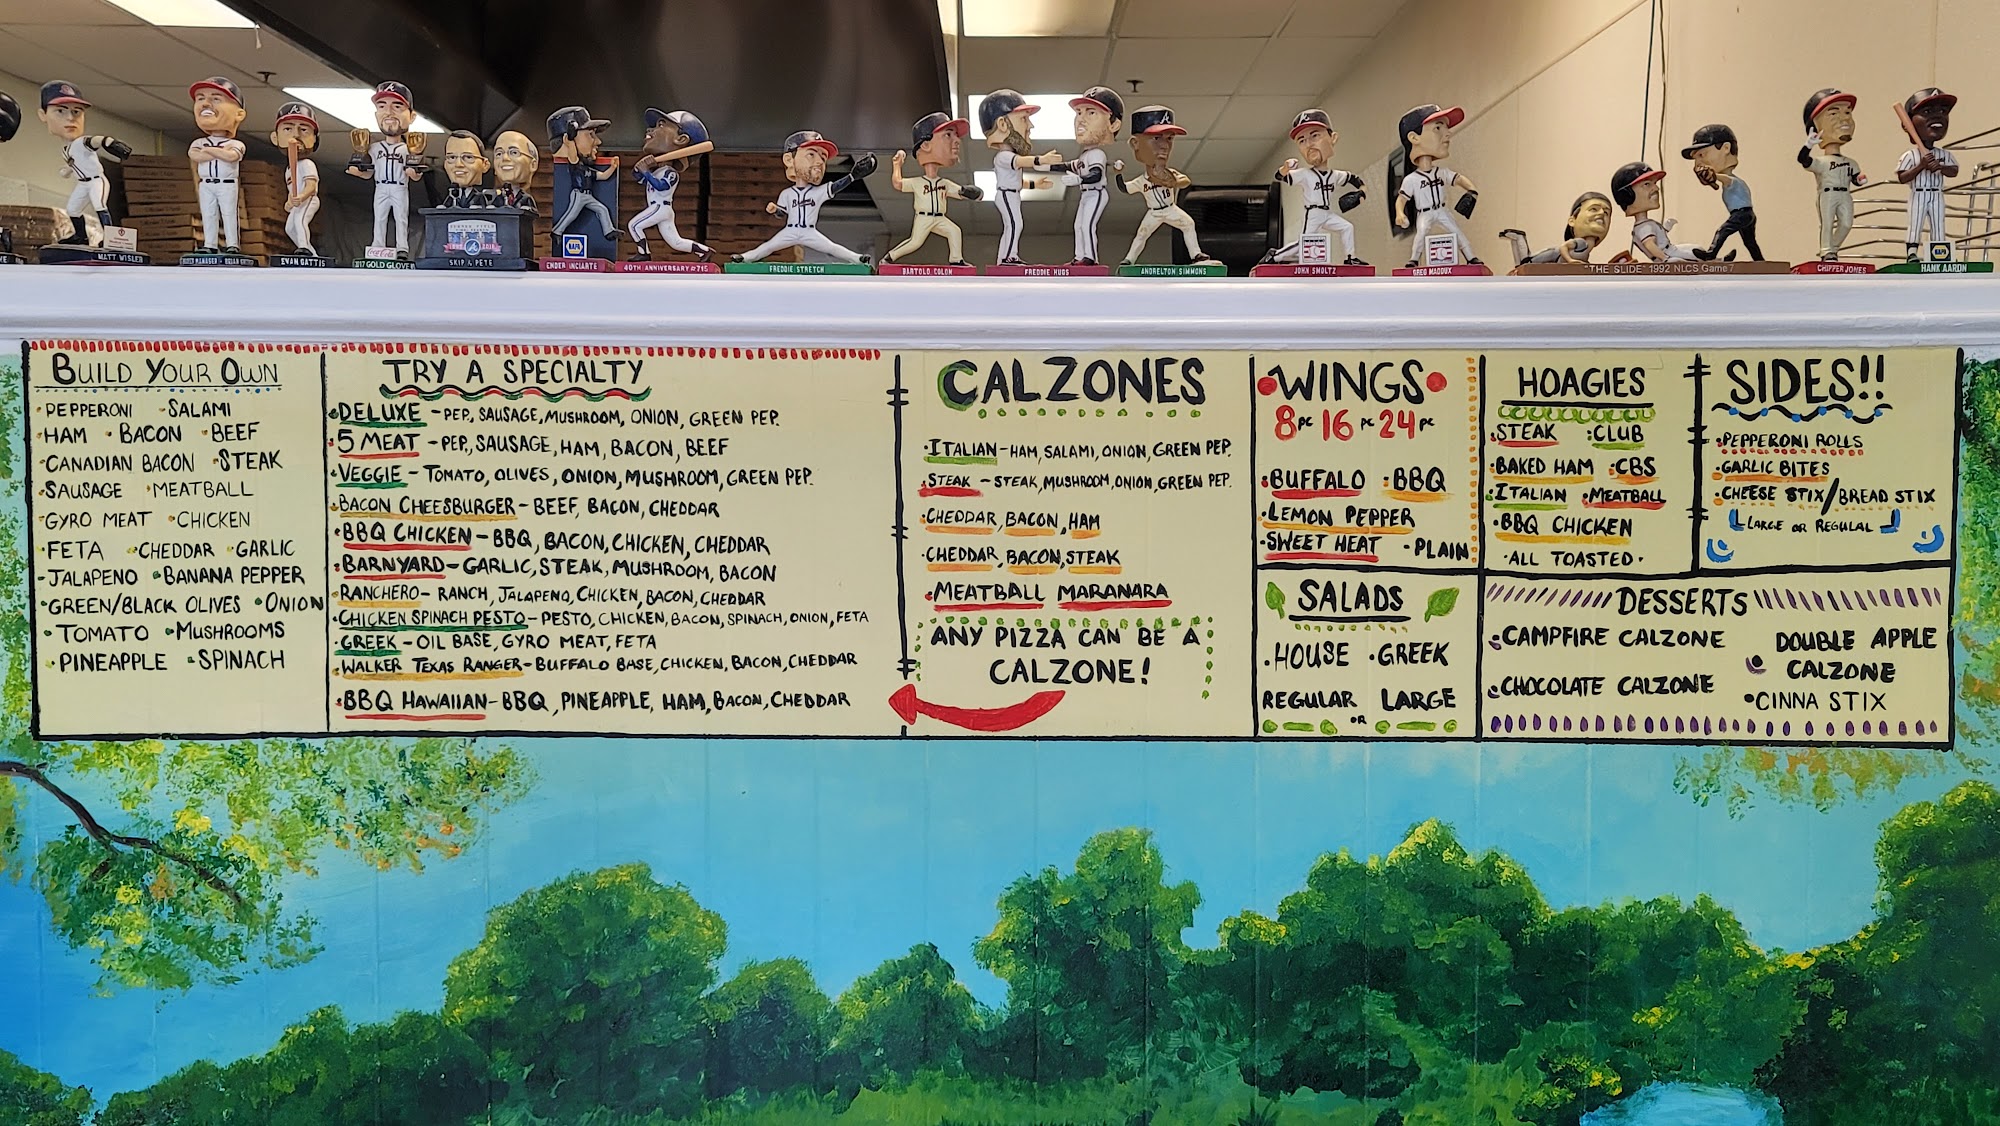 MATT WISLER
EVAN GATTIS
Coca-Cola
2017 GOLD GLOVE
SKIP & PETE
NAPA
ENDER INCIARTE
40TH ANNIVERSARY #715
FREDDIE STRETCH
BARTOLO COLON
FREDDIE HUGS
ANDRELTON SIMMONS
JOHN SMOLTZ
GREG MADDUX
"THE SLIDE" 1992 NLCS Game 7
CHIPPER JONES
NAPA
HANK AARON
BUILD YOUR OWN
PEPPERONI SALAMI
HAM BACON BEEF
CANADIAN BACON STEAK
SAUSAGE MEATBALL
GYRO MEAT CHICKEN
FETA CHEDDAR GARLIC
JALAPENO BANANA PEPPER
GREEN/BLACK OLIVES ONION
TOMATO MUSHROOMS
PINEAPPLE SPINACH
TRY A SPECIALTY
DELUXE - PEP, SAUSAGE, MUSHROOM, ONION, GREEN PEP.
5 MEAT - PEP, SAUSAGE, HAM, BACON, BEEF
VEGGIE - TOMATO, OLIVES, ONION, MUSHROOM, GREEN PEP.
BACON CHEESBURGER - BEEF, BACON, CHEDDAR
BBQ CHICKEN - BBQ, BACON, CHICKEN, CHEDDAR
BARNYARD - GARLIC, STEAK, MUSHROOM, BACON
RANCHERO - RANCH, JALAPENO, CHICKEN, BACON, CHEDDAR
CHICKEN SPINACH PESTO - PESTO, CHICKEN, BACON, SPINACH, ONION, FETA
GREEK - OIL BASE, GYRO MEAT, FETA
WALKER TEXAS RANGER - BUFFALO BASE, CHICKEN, BACON, CHEDDAR
BBQ HAWAIIAN - BBQ, PINEAPPLE, HAM, BACON, CHEDDAR
CALZONES
ITALIAN - HAM, SALAMI, ONION, GREEN PEP.
STEAK - STEAK, MUSHROOM, ONION, GREEN PEP.
CHEDDAR, BACON, HAM
CHEDDAR, BACON, STEAK
MEATBALL MARANARA
ANY PIZZA CAN BE A
CALZONE!
WINGS
8 PC 16 PC 24 PC
BUFFALO BBQ
LEMON PEPPER
SWEET HEAT PLAIN
SALADS
HOUSE GREEK
REGULAR OR LARGE
HOAGIES
STEAK CLUB
BAKED HAM CBS
ITALIAN MEATBALL
BBQ CHICKEN
ALL TOASTED
SIDES!!
PEPPERONI ROLLS
GARLIC BITES
CHEESE STIX/BREAD STIX
LARGE OR REGULAR
DESSERTS
CAMPFIRE CALZONE
CHOCOLATE CALZONE
DOUBLE APPLE
CALZONE
CINNA STIX